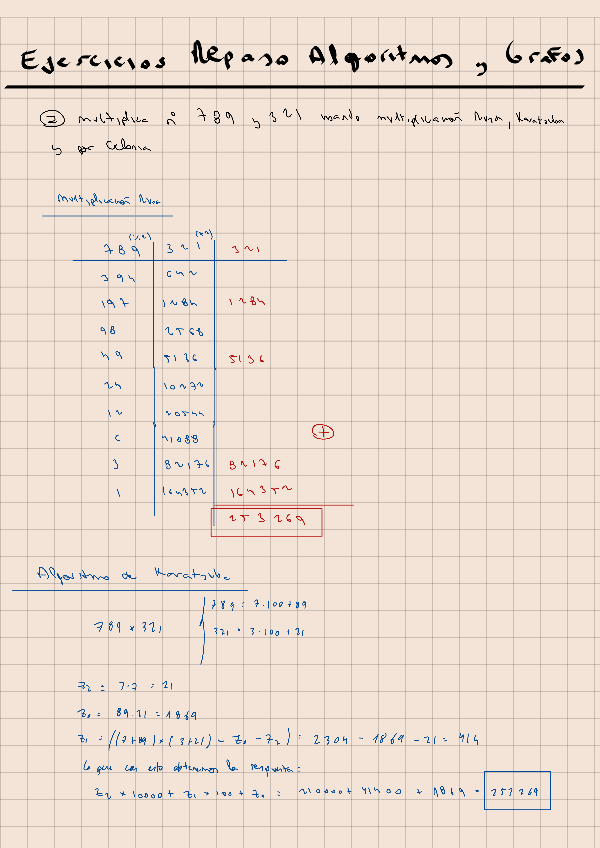 Ejercicios Repaso Algoritmos y Grafos
② Multiplica nº 789 y 321 usando multiplicación Rusa, Karatsuba
y por Celosia
Multiplicación Rusa
(/2) (x2)
789 321 321
394 642
197 1284 1284
98 2568
49 5136 5136
24 10272
12 20544
6 41088
3 82176 82176
1 164352 164352
+
253269
Algoritmo de Karatsuba
789 = 7·100+89
789 x 321
321 = 3·100+21
Z2 = 7·3 = 21
Z0 = 89·21 = 1869
Z1 = ((7+89) x (3+21) - Z0 - Z2) = 2304 - 1869 - 21 = 414
Lo que con esto obtenemos la respuesta:
Z2 x 10000 + Z1 x 100 + Z0 = 210000 + 41400 + 1869 = 253269